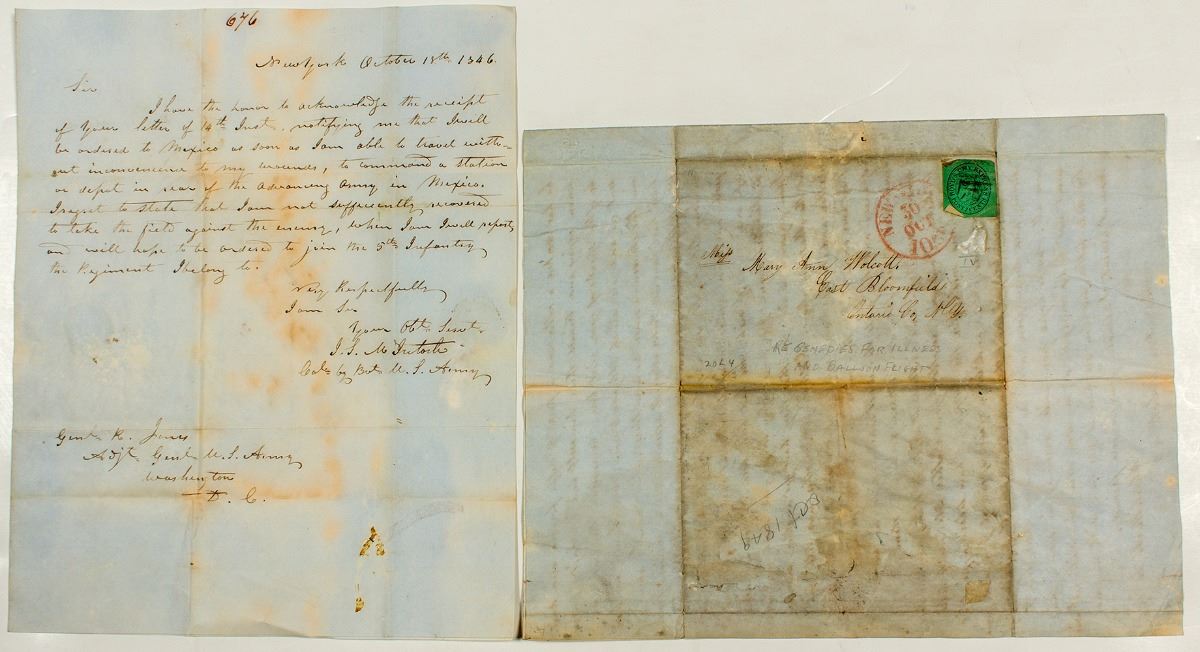 676
New York October 18th 1846.
Sir
I have the honor to acknowledge the receipt
of your letter of 14th Inst. notifying me that I will
be ordered to Mexico as soon as I am able to travel with=
out inconvenience to my wounds, to command a station
or depot in rear of the advancing Army in Mexico.
I regret to state that I am not sufficiently recovered
to take the field against the enemy, when I am I will report,
and will hope to be ordered to join the 5th Infantry
the Regiment I belong to.
Very Respectfully
I am Sir
Your Obt. Servt.
J. S. McIntosh
Col. by Bvt. U. S. Army
Genl. R. Jones
Adjt. Genl. U. S. Army
Washington
D. C.
NEW
30
OCT
10
Miss
Mary Ann Wolcott
East Bloomfield
Ontario Co, N. Y.
RE REMEDIES FOR ILLNESS
AND BALLOON FLIGHT
20L4
Oct 1849